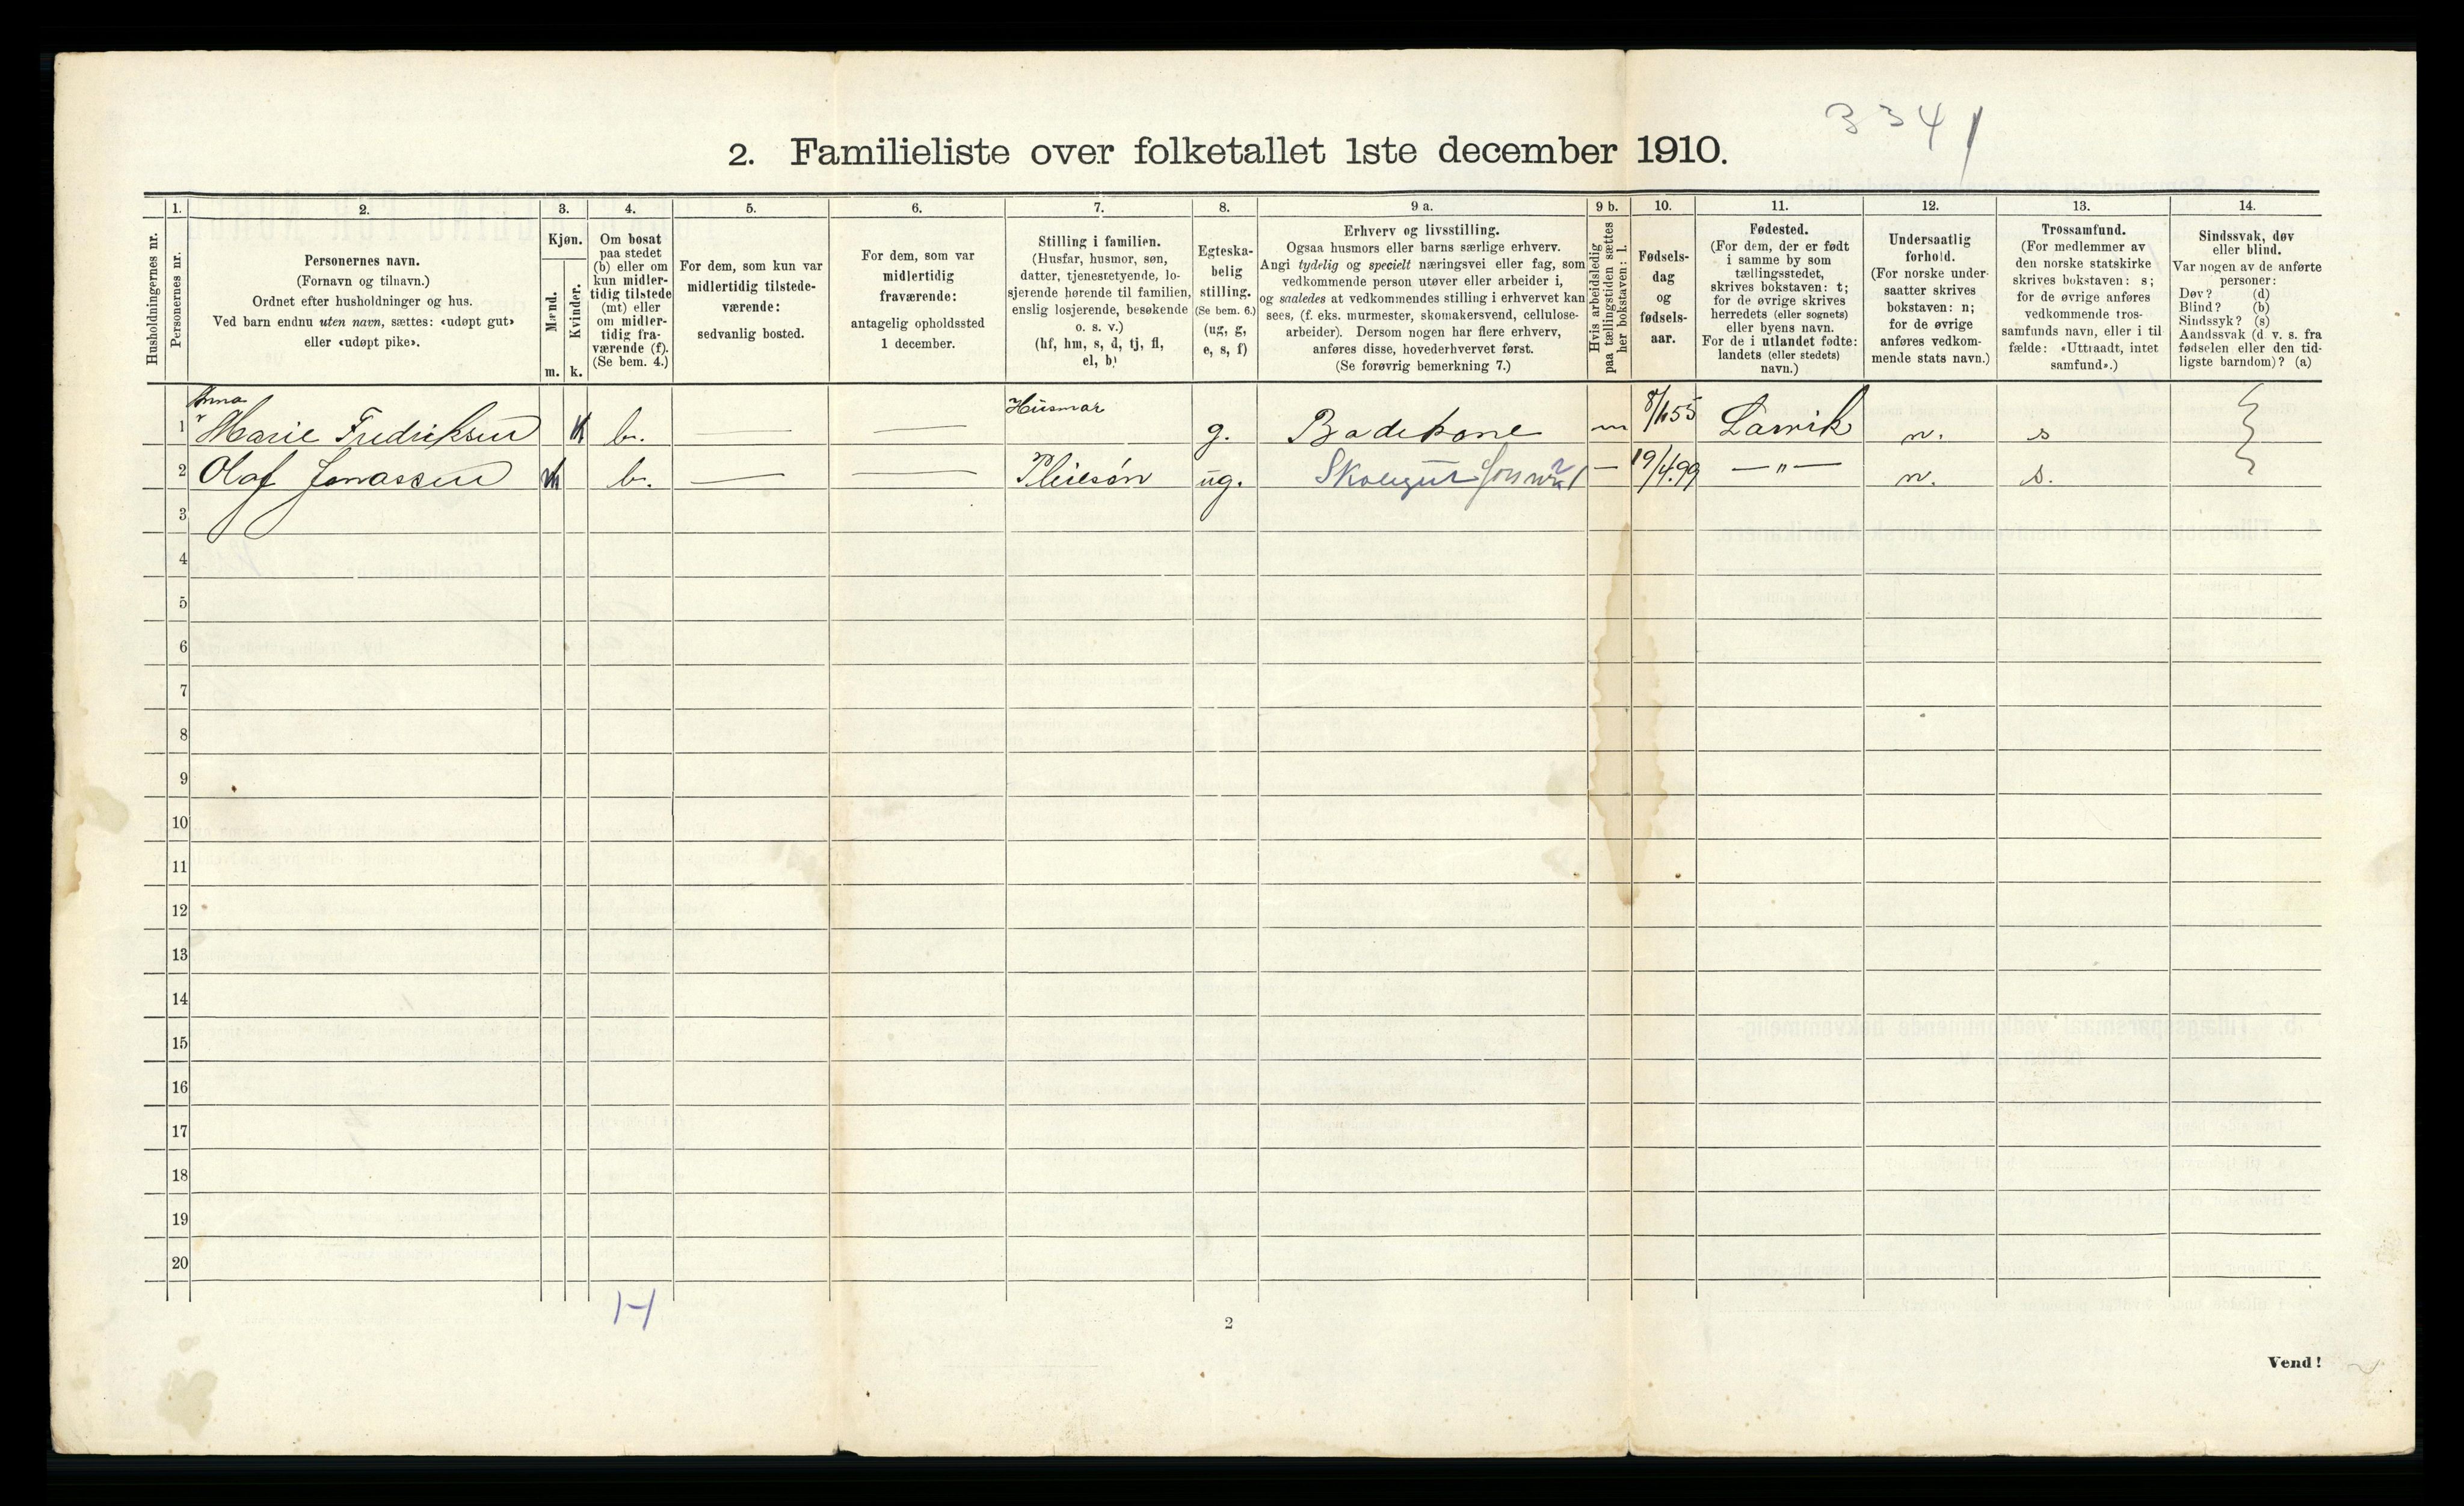 3341
2. Familieliste over folketallet 1ste december 1910.
Husholdningernes nr.
1.
Personernes nr.
2.
Personernes navn.
(Fornavn og tilnavn.)
Ordnet efter husholdninger og hus.
Ved barn endnu uten navn, sættes: «udøpt gut»
eller «udøpt pike».
3.
Kjøn.
Mænd.
Kvinder.
m.
k.
4.
Om bosat
paa stedet
(b) eller om
kun midler-
tidig tilstede
(mt) eller
om midler-
tidig fra-
værende (f).
(Se bem. 4.)
5.
For dem, som kun var
midlertidig tilstede-
værende:
sedvanlig bosted.
6.
For dem, som var
midlertidig
fraværende:
antagelig opholdssted
1 december.
7.
Stilling i familien.
(Husfar, husmor, søn,
datter, tjenestetyende, lo-
sjerende hørende til familien,
enslig losjerende, besøkende
o. s. v.)
(hf, hm, s, d, tj, fl,
el, b)
8.
Egteska-
belig
stilling.
(Se bem. 6.)
(ug, g,
e, s, f)
9 a.
Erhverv og livsstilling.
Ogsaa husmors eller barns særlige erhverv.
Angi tydelig og specielt næringsvei eller fag, som
vedkommende person utøver eller arbeider i,
og saaledes at vedkommendes stilling i erhvervet kan
sees, (f. eks. murmester, skomakersvend, cellulose-
arbeider). Dersom nogen har flere erhverv,
anføres disse, hovederhvervet først.
(Se forøvrig bemerkning 7.)
9 b.
Hvis arbeidsledig
paa tællingstiden sættes
her bokstaven: l.
10.
Fødsels-
dag
og
fødsels-
aar.
11.
Fødested.
(For dem, der er født
i samme by som
tællingsstedet,
skrives bokstaven: t;
for de øvrige skrives
herredets (eller sognets)
eller byens navn.
For de i utlandet fødte:
landets (eller stedets)
navn.)
12.
Undersaatlig
forhold.
(For norske under-
saatter skrives
bokstaven: n;
for de øvrige
anføres vedkom-
mende stats navn.)
13.
Trossamfund.
(For medlemmer av
den norske statskirke
skrives bokstaven: s;
for de øvrige anføres
vedkommende tros-
samfunds navn, eller i til-
fælde: «Uttraadt, intet
samfund».)
14.
Sindssvak, døv
eller blind.
Var nogen av de anførte
personer:
Døv? (d)
Blind? (b)
Sindssyk? (s)
Aandssvak (d. v. s. fra
fødselen eller den tid-
ligste barndom)? (a)
Anna
1 Marie Fredriksen K b. — — Husmor g. Badekone — Larvik n. s
2 Olaf Jonassen M b. — — Pleiesøn ug. Skolegut — 19/4.99 — " — n. s.
3
4
5
6
7
8
9
10
11
12
13
14
15
16
17
18
19
20
H
2
Vend!